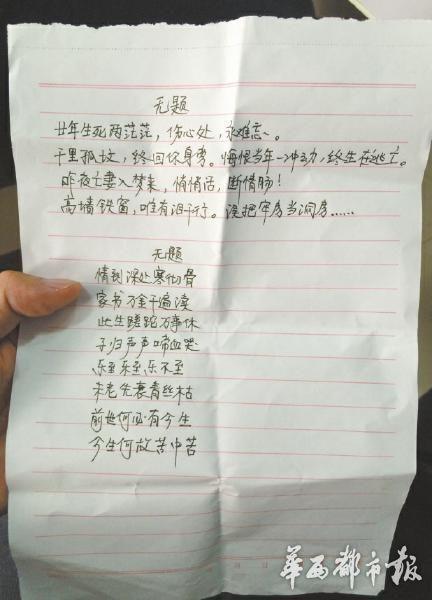 无题
廿年生死两茫茫，伤心处，永难忘。
千里孤坟，终回你身旁。悔恨当年一冲动，终生在逃亡。
昨夜亡妻入梦来，悄悄话，断情肠！
高墙铁窗，唯有泪千行。没把牢房当洞房……
无题
情到深处寒彻骨
家书万金千遍读
此生蹉跎万事休
子归声声啼血哭
乐至乐至乐不至
未老先衰青丝枯
前世何必有今生
今生何故苦中苦
华西都市报